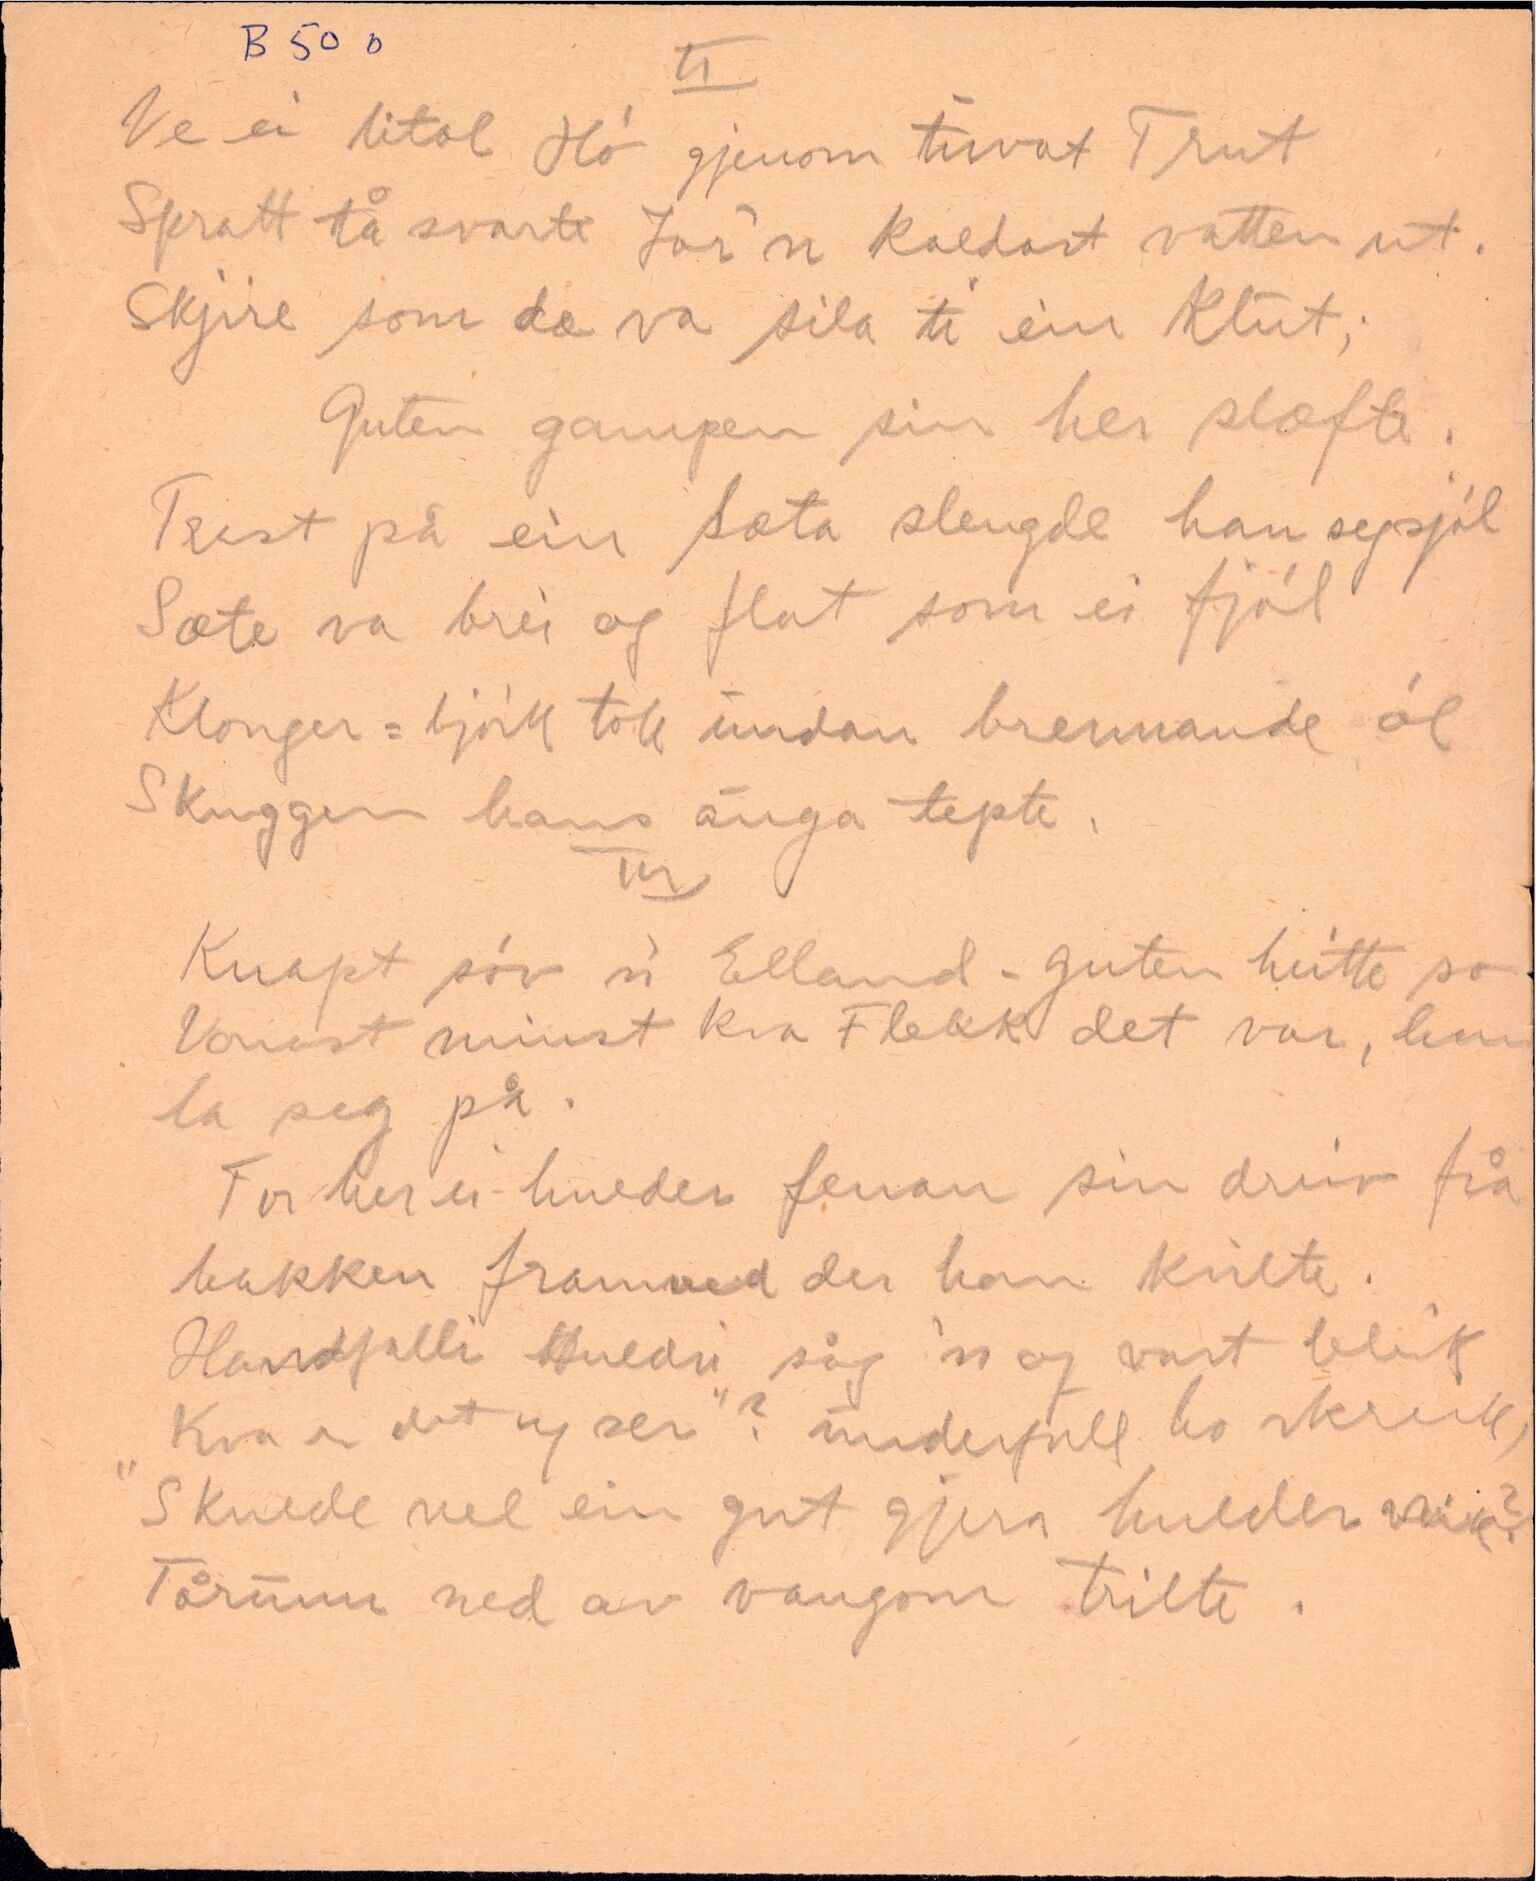 B 50 o
II
Ve ei litol Hó gjenom tuvat Trut
Spratt tå svarte Jor'n kaldart vatten ut.
Skjire som dæ va sila ti ein Klut;
Guten gampen sin her slæfte.
Trest på ein Sæta slengde han seg sjól
Sæte va brei og flat som ei fjól
Klonger = bjórk tok undan brennande ól
Skuggen hans auga tepte.
III
Knapt sóv n Elland-guten hutte so
Vonest minst kva Flekk det var, han
la seg på.
For her ei hulder fenan sin dreiv frå
bakken framved der han kvilte.
Handfalli Huldri såg 'n og vart bleik
Kva er det eg ser"? underfull ho skreik,
"Skulde vel ein gut gjera hulder veik?
Tårunn ned av vangom trilte.